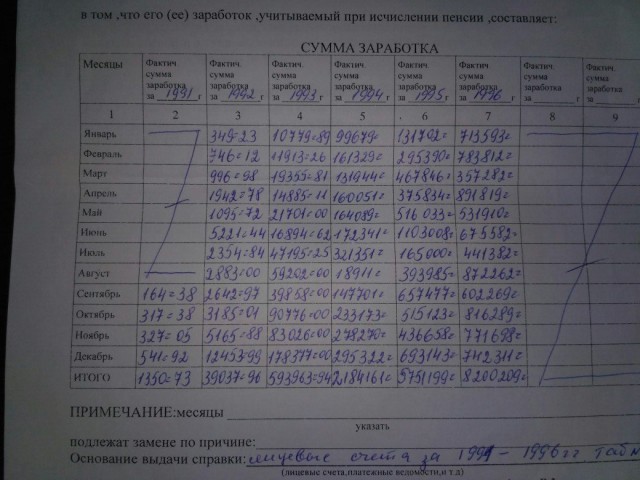 в том ,что его (ее) заработок ,учитываемый при исчислении пенсии ,составляет:
СУММА ЗАРАБОТКА
Месяцы Фактич. сумма заработка за 1991 г Фактич. сумма заработка за 1992 г Фактич. сумма заработка за 1993 г Фактич. сумма заработка за 1994 г Фактич. сумма заработка за 1995 г Фактич. сумма заработка за 1996 г Фактич. сумма заработка за ______ г Фактич. сумма заработка за ______ г
1 2 3 4 5 6 7 8 9
Январь 349=23 10779=89 99679= 131702= 713593=
Февраль 746=12 11913=26 161329= 295390= 783812=
Март 996=98 19355=81 131944= 467846= 357282=
Апрель 1942=78 14885=11 160051= 375834= 891819=
Май 1095=72 21701=00 164089= 516033= 531910=
Июнь 5221=44 16894=62 172341= 1103008= 675582=
Июль 2354=84 47195=25 321351= 165000= 441382=
Август 2883=00 59202=00 18911= 393985= 872262=
Сентябрь 164=38 2642=97 39858=00 147701= 657477= 602269=
Октябрь 317=38 3185=01 90776=00 233173= 515123= 816289=
Ноябрь 327=05 5165=88 83026=00 278270= 436658= 771698=
Декабрь 541=92 12453=99 178377=00 295322= 693143= 742311=
ИТОГО 1350=73 39037=96 593963=94 2184161= 5751199= 8200209=
ПРИМЕЧАНИЕ:месяцы
указать
подлежат замене по причине:
Основание выдачи справки: лицевые счета за 1991-1996гг
(лицевые счета,платежные ведомости,и т.д)